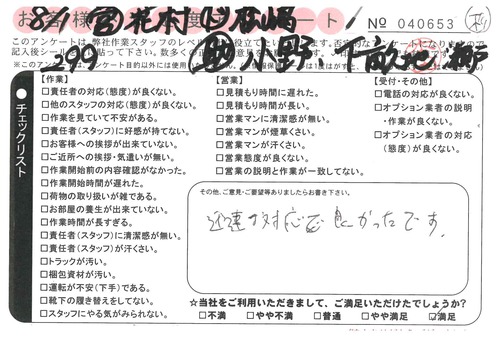 8/1 営 花村 
No 040653
299
このアンケートは、弊社作業スタッフのレベル
【作業】
□責任者の対応(態度)が良くない。
□他のスタッフの対応(態度)が良くない。
□作業を見ていて不安がある。
□責任者(スタッフ)に好感が持てない。
□お客様への挨拶が出来ていない。
□ご近所への挨拶・気遣いが無い。
□作業開始前の内容確認がなかった。
□作業開始時間が遅れた。
□荷物の取り扱いが雑である。
□お部屋の養生が出来ていない。
□作業時間が長すぎる。
□責任者(スタッフ)に清潔感が無い。
□責任者(スタッフ)が汗くさい。
□トラックが汚い。
□梱包資材が汚い。
□運転が不安(下手)である。
□靴下の履き替えをしてない。
□スタッフにやる気がみられない。
【営業】
□見積もり時間に遅れた。
□見積もり時間が長い。
□営業マンに清潔感が無い。
□営業マンが煙草くさい。
□営業マンが汗くさい。
□営業態度が良くない。
□営業の説明と作業が一致してない。
【受付・その他】
□電話の対応が良くない。
□オプション業者の説明
・作業が良くない。
□オプション業者の対応
(態度)が良くない。
チェックリスト
その他、ご意見・ご要望等ありましたらお書き下さい。
迅速な対応で良かったです。
☆当社をご利用いただきまして、ご満足いただけたでしょうか?
□不満 □やや不満 □普通 □やや満足 ☑満足